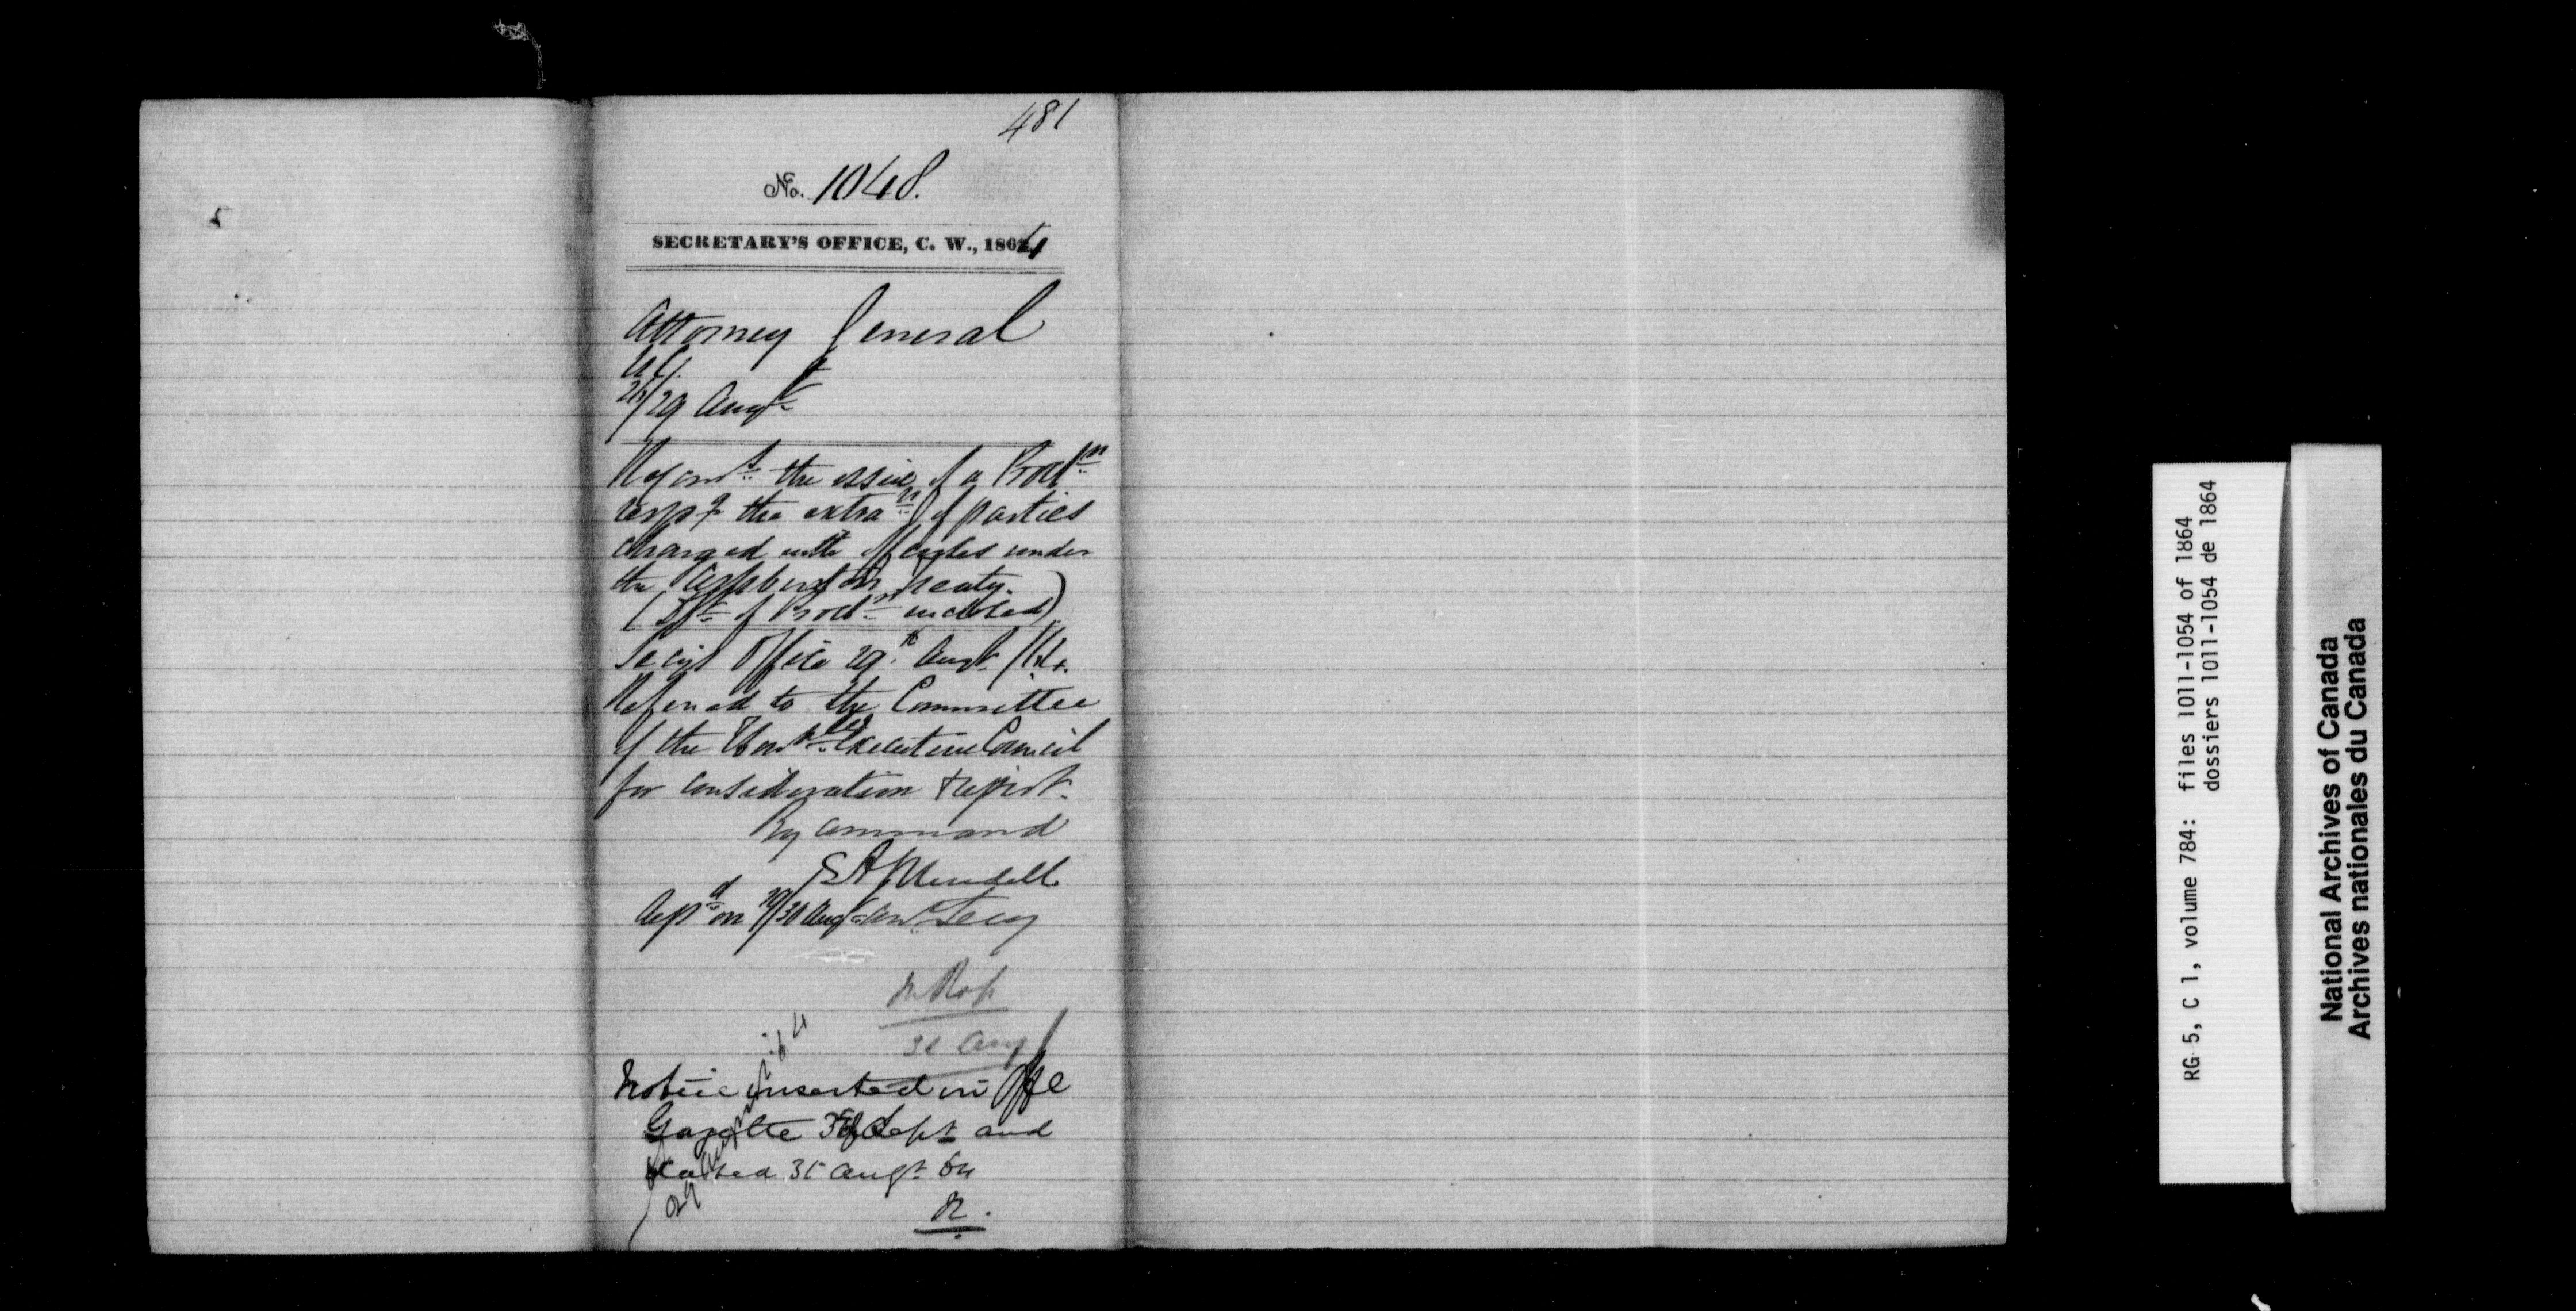 481
No. 1048.
SECRETARY'S OFFICE, C. W., 1864
Attorney General
U.C.
26/29 Augt
Recomds the issue of a Procln
resp g the extran of parties
charged with offences under
the Ashburton Treaty.
(Dft of Procln enclosed)
Secys Office 29th Augt /64.
Referred to the Committee
of the Honble Executive Council
for consideration & report.
By Command
Asst Secy
Appd on 30/31 Augt
31 Augt
Notice inserted in Offl
Gazette 3d Sept and
dated 31 Augt 64
R.
RG 5, C 1, volume 784: files 1011-1054 of 1864
dossiers 1011-1054 de 1864
National Archives of Canada
Archives nationales du Canada